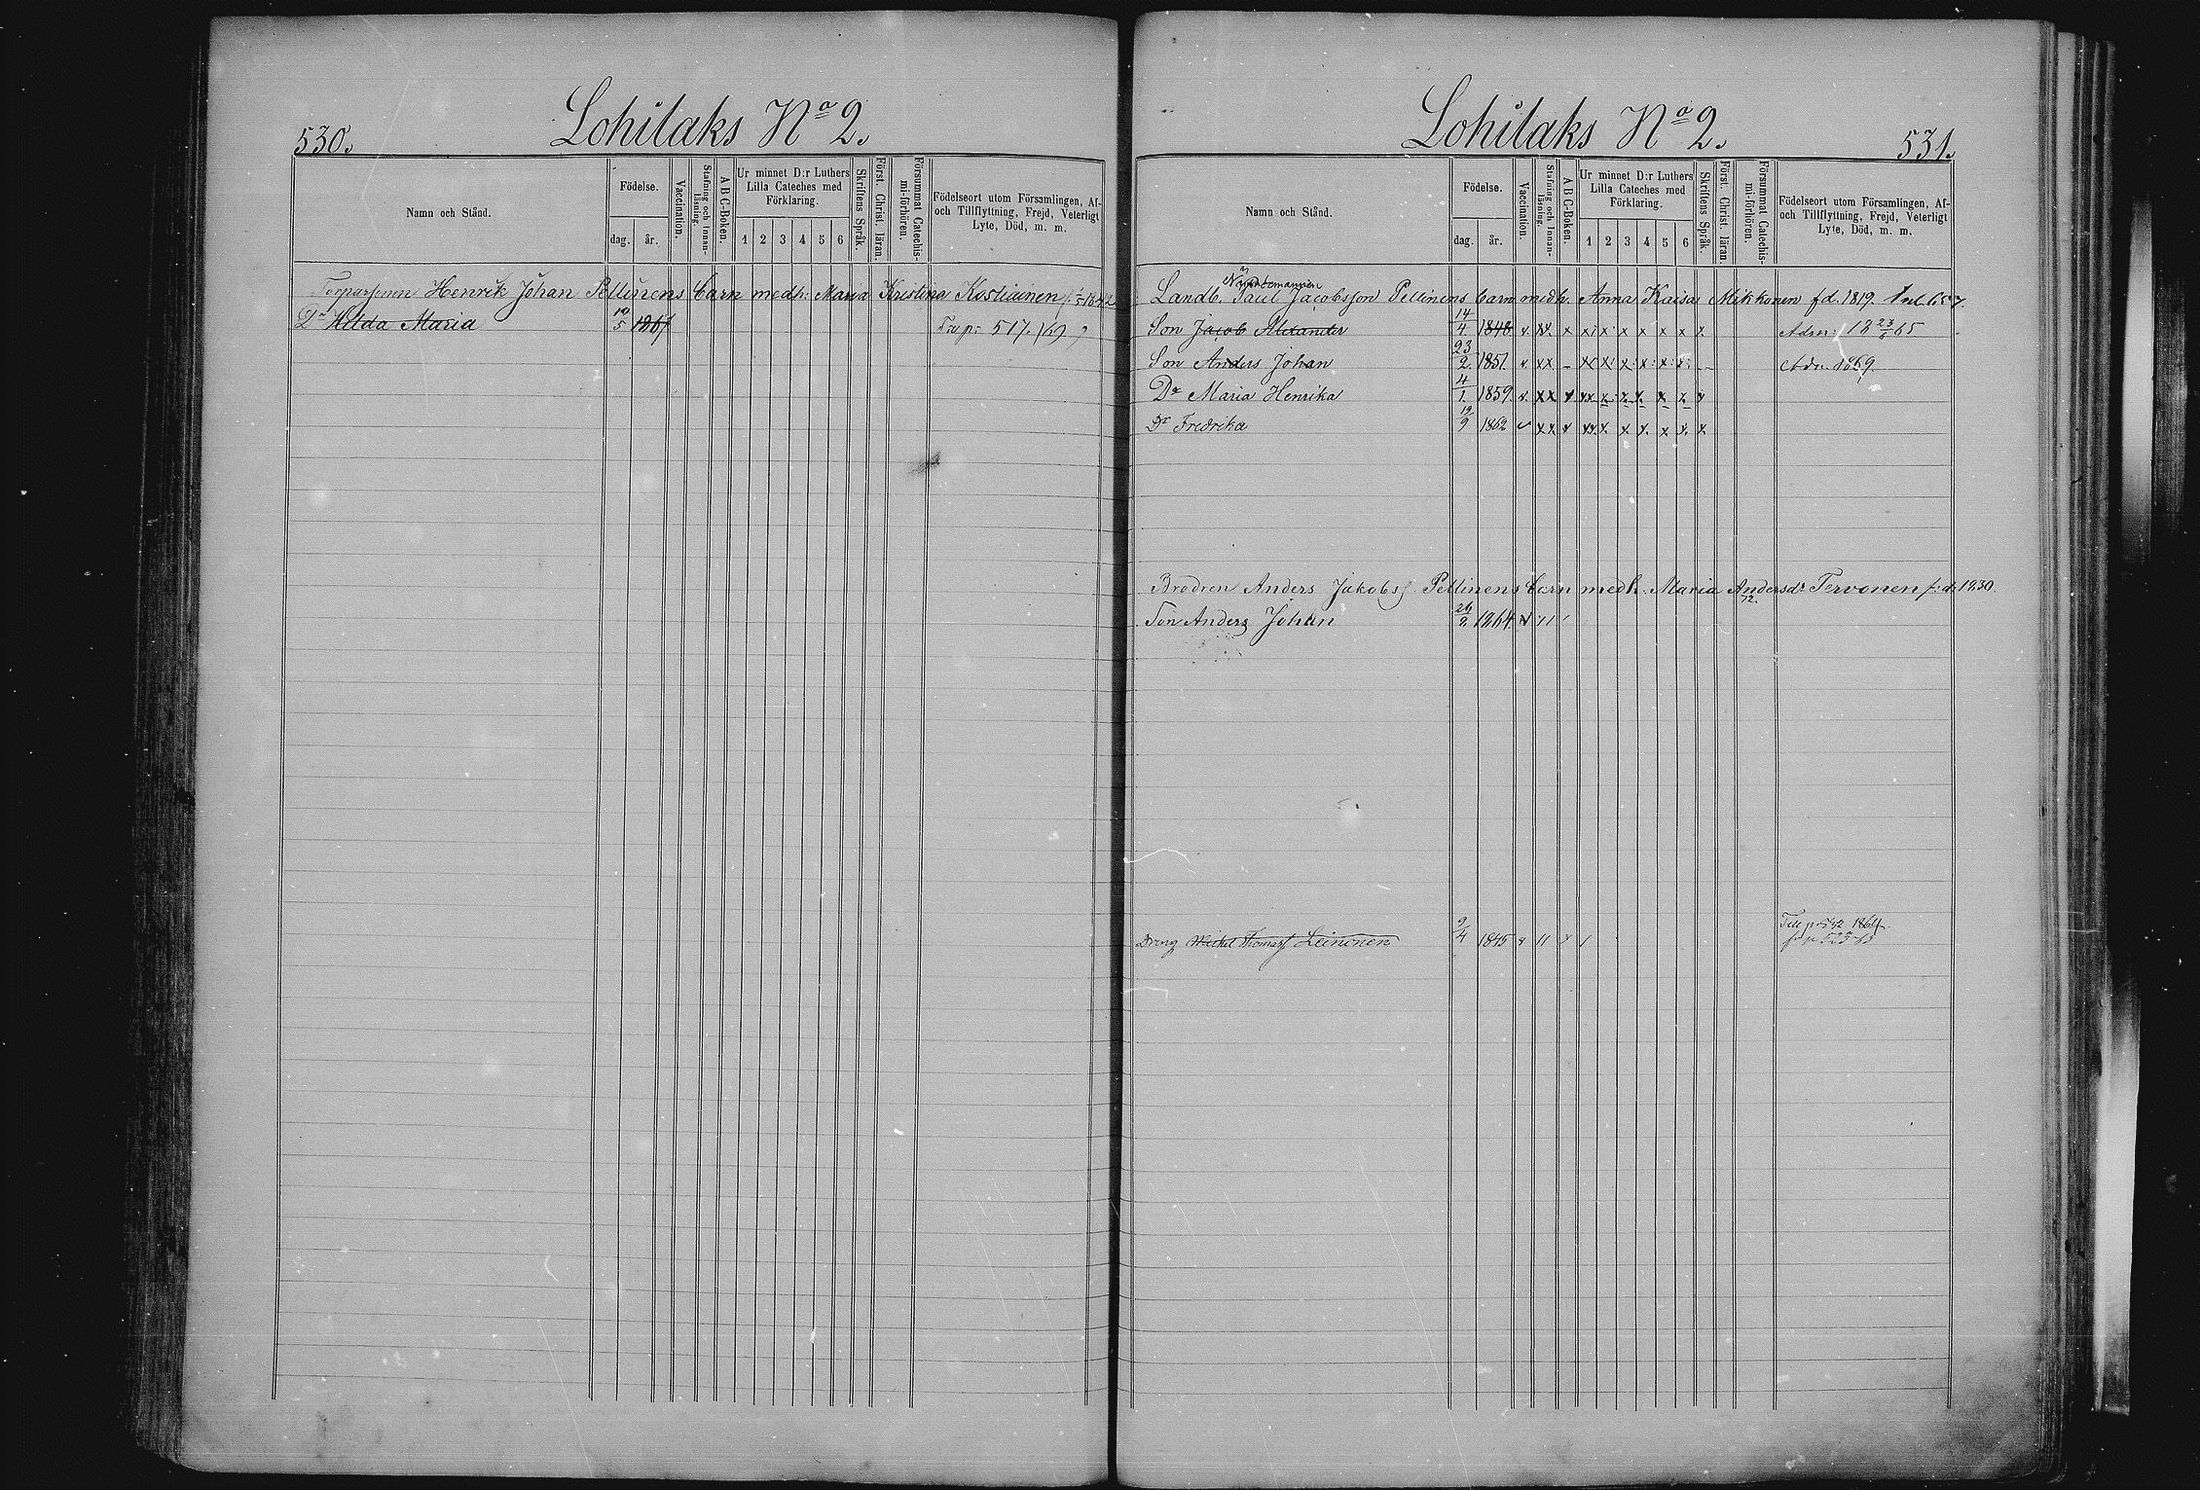 530.
Lohilaks No 2.
Namn och Stånd.
Födelse.
dag. år.
Vaccination.
Stafning och Innan-läsning.
A B C-Boken.
Ur minnet D:r Luthers Lilla Cateches med Förklaring.
1 2 3 4 5 6
Skriftens Språk.
Först. Christ. läran.
Försummat Catechis-mi-förhören.
Födelseort utom Församlingen, Af- och Tillflyttning, Frejd, Veterligt Lyte, Död, m. m.
Henrik Johan Pellinens barn medh: Maria Kristina Kostiainen
Dr Hilda Maria 10/5 1867 517. /69.
Lohilaks No 2.
531.
Namn och Stånd.
Födelse.
dag. år.
Vaccination.
Stafning och Innan-läsning.
A B C-Boken.
Ur minnet D:r Luthers Lilla Cateches med Förklaring.
1 2 3 4 5 6
Skriftens Språk.
Först. Christ. läran.
Försummat Catechis-mi-förhören.
Födelseort utom Församlingen, Af- och Tillflyttning, Frejd, Veterligt Lyte, Död, m. m.
Nämndemannen
Landb. Paul Jacobsson Pellinens barn medh. Anna Kaisa Mikkonen fd. 1819.
Son Jacob Alexander 14/4 1848. x x x x x x x Adm: 18 23/6 65
Son Anders Johan 23/2 1851. xx Adm. 1869.
Dr Maria Henrika 4/1 1859. xx
Dr Fredrika 19/9 1862 xx
Brodren Anders Jakobss. Pellinens barn medh. Maria Andersdr Tervonen f:d: 1830.
Son Anders Johan 26/2 1864
Dreng Michel Thomass Leinonen 9/4 1845